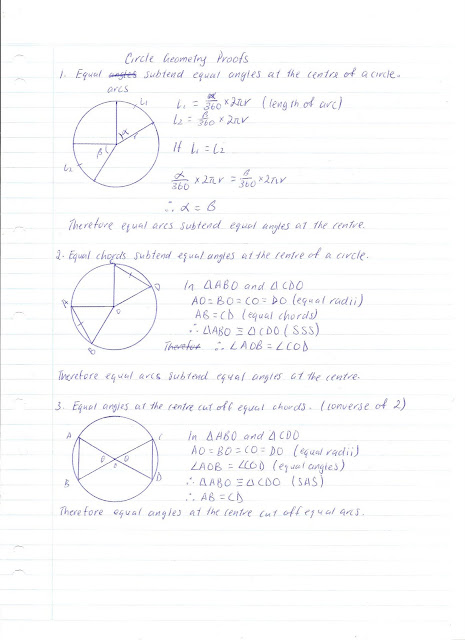 Circle Geometry Proofs
1. Equal angles subtend equal angles at the centre of a circle.
arcs
L₁
α
β
L₂
L₁ = α/360 × 2πr (length of arc)
L₂ = β/360 × 2πr
If L₁ = L₂
α/360 × 2πr = β/360 × 2πr
∴ α = β
Therefore equal arcs subtend equal angles at the centre.
2. Equal chords subtend equal angles at the centre of a circle.
C
D
A
O
B
In △ABO and △CDO
AO = BO = CO = DO (equal radii)
AB = CD (equal chords)
∴ △ABO ≡ △CDO (SSS)
Therefor ∴ ∠AOB = ∠COD
Therefore equal arcs subtend equal angles at the centre.
3. Equal angles at the centre cut off equal chords. (converse of 2)
A
C
θ
θ
O
B
D
In △ABO and △CDO
AO = BO = CO = DO (equal radii)
∠AOB = ∠COD (equal angles)
∴ △ABO ≡ △CDO (SAS)
∴ AB = CD
Therefore equal angles at the centre cut off equal arcs.